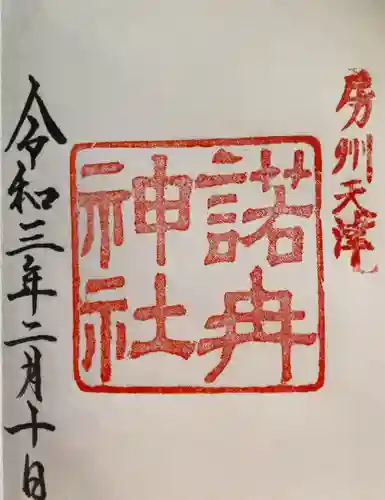 房州天津
諾冉
神社
令和三年二月十日